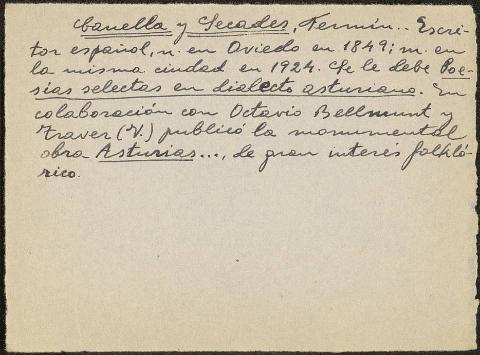 Canella y Secades, Fermín.. Escri-
tor español, n. en Oviedo en 1849; m. en
la misma ciudad en 1924. Se le debe Poe-
sias selectas en dialecto asturiano. En
colaboración con Octavio Bellmunt y
Traver (V.) publicó la monumental
obra Asturias..., de gran interés folkló-
rico.